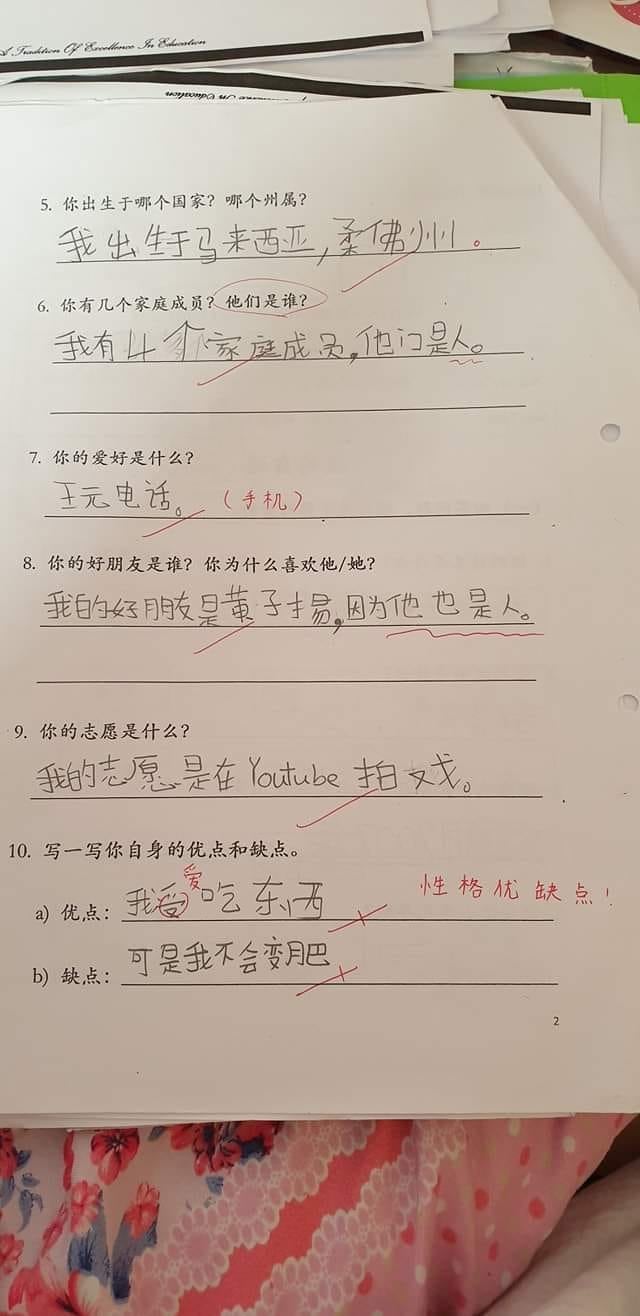 A Tradition Of Excellence In Education
5. 你出生于哪个国家？哪个州属？
我出生于马来西亚，柔佛州。
6. 你有几个家庭成员？他们是谁？
我有4个家庭成员，他门是人。
7. 你的爱好是什么？
王元电话。（手机）
8. 你的好朋友是谁？你为什么喜欢他/她？
我的好朋友是黄子揚，因为他也是人。
9. 你的志愿是什么？
我的志愿是在Youtube拍戏。
10. 写一写你自身的优点和缺点。
爱
a) 优点：我受吃东西
性格优缺点！
b) 缺点：可是我不会变肥
2